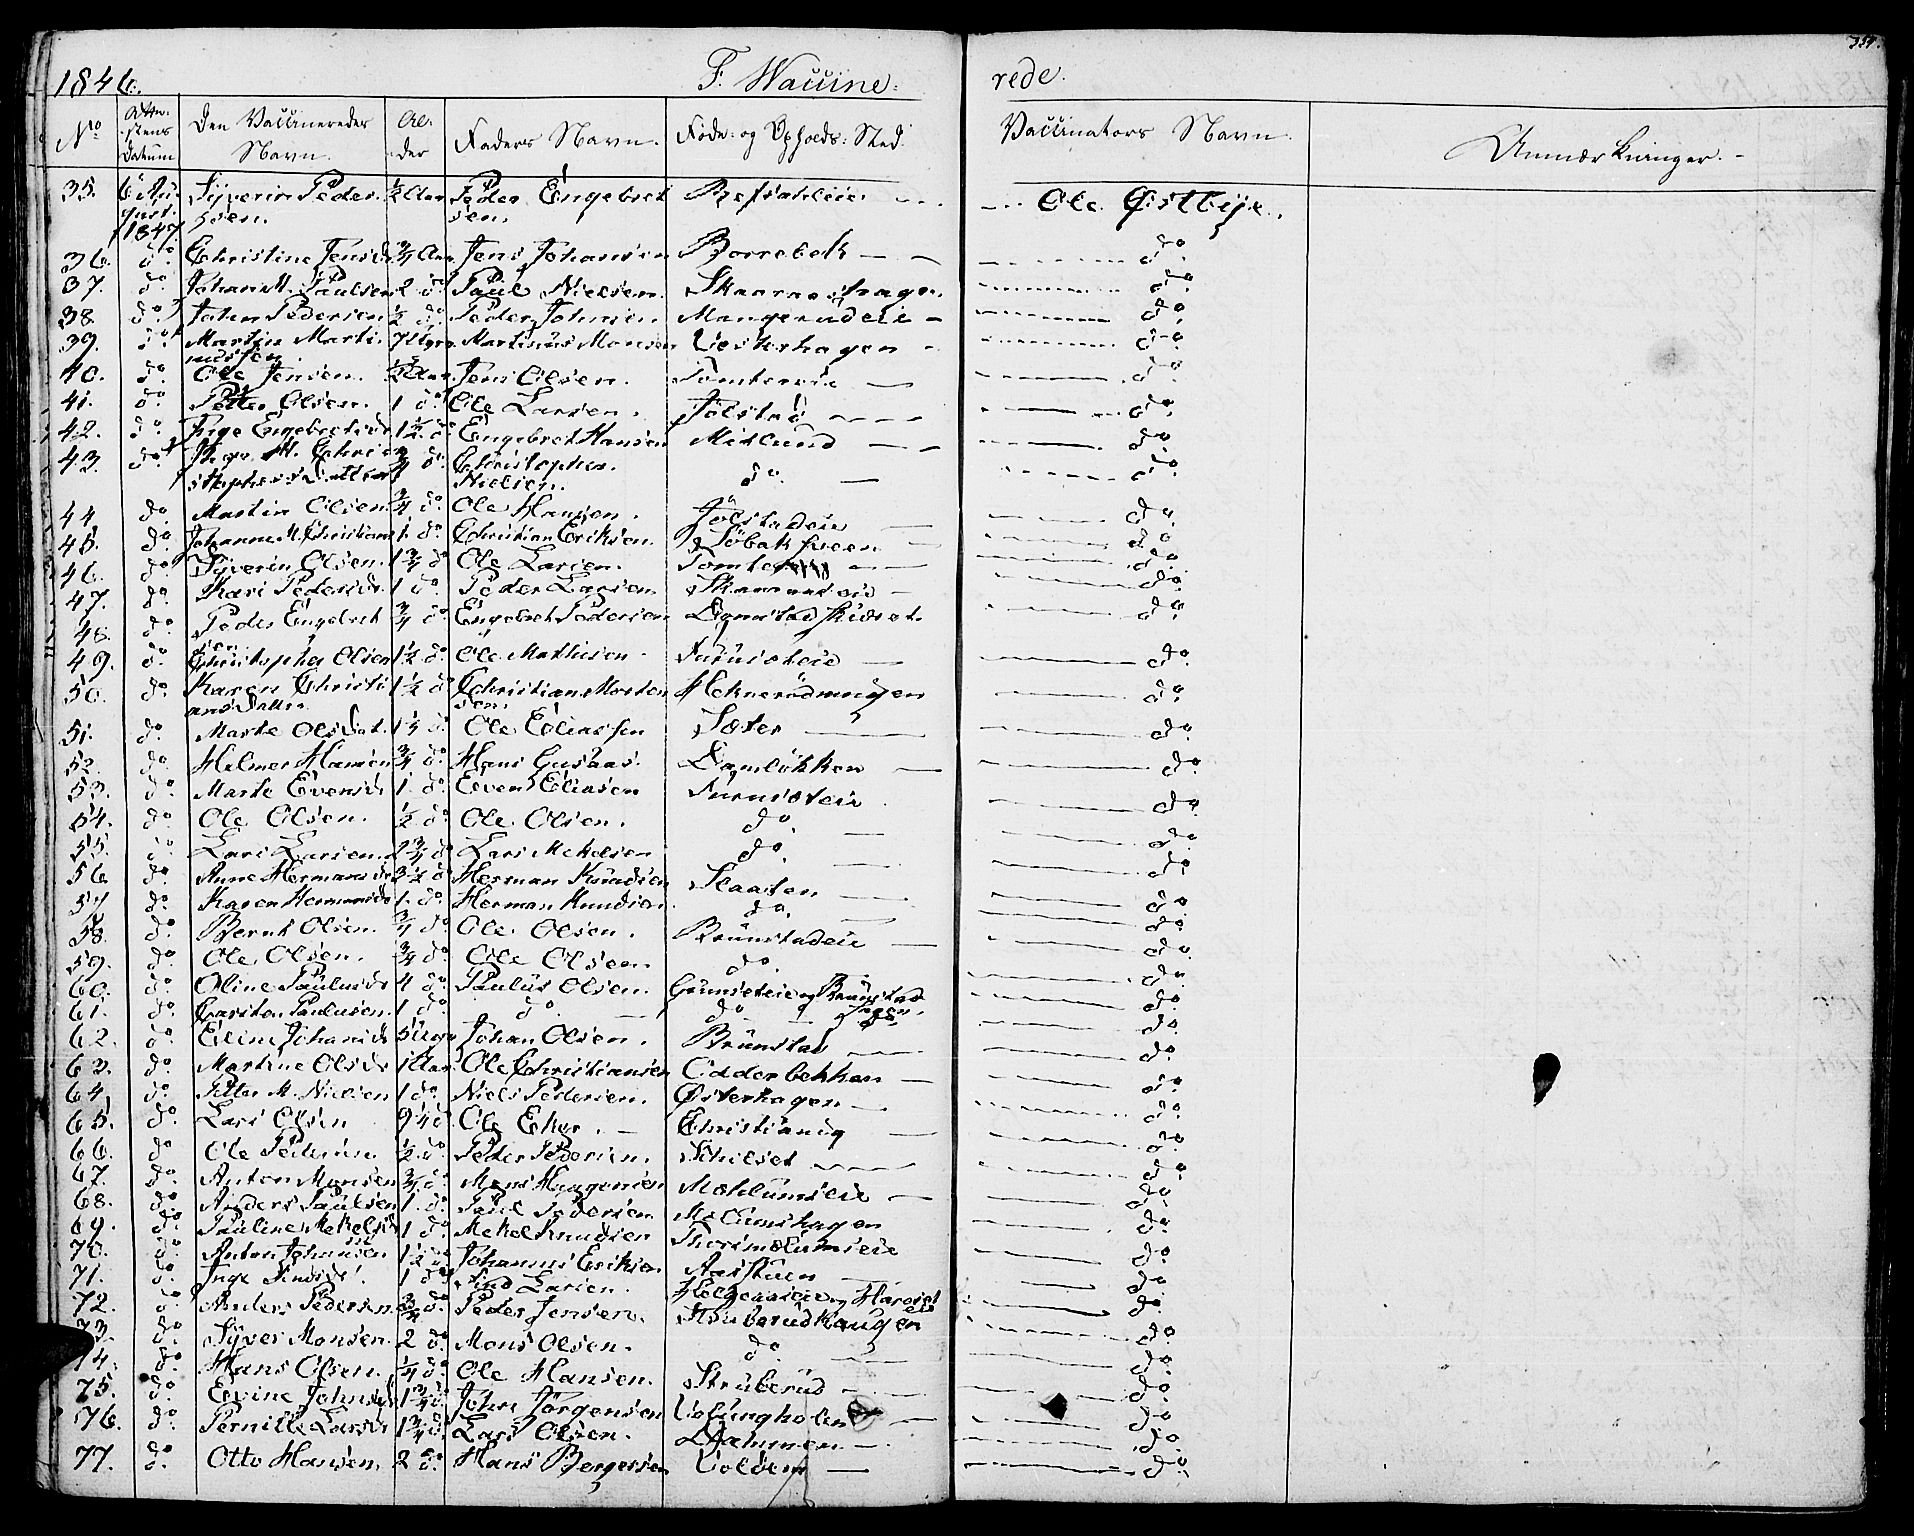 1846.
F. Waccine=
rede.
No
Attestens Datum
Den Vaccineredes Navn.
Alder
Faders Navn.
Føde- og Opholds-Sted.
Vaccinators Navn.
Anmærkninger.
35. 6 August 1847 Syverin Pedersen. 1/2 Aar Peder Engebretsen. Refsahleie Ole Østbye.
36. do Christine Jensd 3/4 Aar Jens Johansen Borrebek do
37. do Johan M. Paulsen 2 do Paul Nielsen. Skaarneshagen do
38. do Johan Pedersen 1/2 do Peder Johnsen. Mangerudeie do
39. do Martin Martinussen 7 Uger Martinus Monsen Vesterhagen do
40. do Ole Jensen. Aar Jens Olsen. Tomtereie do
41. do Petter Olsen. 1 do Ole Larsen. Jølstad do
42. do Inge Engebretsd 1 1/2 do Engebret Hansen Midlund do
43. do M. Christophersdatter 3/4 do Christopher Nielsen. do do
44. do Martin Olsen 3/4 do Ole Hansen. Jølstadeie do
45. do Johanne M. Christians 1 do Christian Eriksen. Søbakhveen do
46. do Syverin Olsen. 1 3/4 do Ole Larsen. do
47. do Kari Pedersd. 1 do Peder Larsen do
48. do Peder Engebretsen 3/4 do Engebret Pedersen do
49. do Christopher Olsen 1 1/2 do Ole Mathisen Furuseteie do
50. do Karen Christiansdatter 1 1/2 do Christian Mortensen. Heknerødningen do
51. do Marte Olsdat. 1 1/4 do Ole Eliassen Sæter do
52. do Helmer Hansen 3/4 do Hans Gusaas. Damløkken do
53. do Marte Evensd 1 do Even Eliasen Furuseteie do
54. do Ole Olsen. 1/2 do Ole Olsen. do do
55. do Lars Larsen. 2 3/4 do Lars Mekelsen do do
56. do Anne Hermansd 3 1/2 do Herman Knudsen Slaaten do
57. do Karen Hermansd 1 do Herman Knudsen. do do
58. do Bernt Olsen. 3/4 do Ole Olsen. Brunstadeie do
59. do Ole Olsen. 3/4 do Ole Olsen. do do
60. do Oline Paulusd 4 do Paulus Olsen. Grunseteie og Brunstad do
61. do Carsten Paulusen. 1 do do do do
62. do Eline Johansd 5 Uger Johan Olsen. Brunstad do
63. do Martine Olsd 1 Aar Ole Christiansen Odderbekken do
64. do Petter M. Nielsen 1 do Niels Pedersen. Østerhagen do
65. do Lars Olsen 9 1/4 do Ole Eker. Christiania do
66. do Ole Pedersen 1/2 do Peder Pedersen. Schilset do
67. do Anton Monsen 3/4 do Mons Haagensen Mæhlumseie do
68. do Anders Paulsen 1 do Paul Pedersen. Mælumshagen do
69. do Pauline Mekelsd 1 do Mekel Knudsen Thorsmælumseie do
70. do Anton Johannsen 1 1/2 do Johannes Eriksen Aasstuen do
71. do Inge Findsd. 1 do Find Larsen. do
72. do Anders Pedersen 3/4 do Peder Jensen. Struberudhaugen do
73. do Syver Monsen. 2 do Mons Olsen. do do
74. do Hans Olsen. 1/4 do Ole Hansen. Struberud do
75. do Evine Johnsd 1 3/4 do John Jørgensen do
76. do Pernille Larsd 1 3/4 do Lars Olsen. Dammen do
77. do Otto Hansen. 2 do Hans Børgersen Volden do